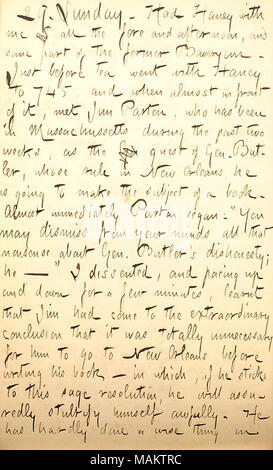 29. Sunday. Had Haney with
me all the fore and afternoon, and
some part of the former Banergin.
Just before tea went with Haney
to 745, and when almost in front
of it, met Jim Parton, who has been
in Massachusetts during the past two
weeks, as the guest of Gen. But-
ler, whose rule in New Orleans, he
is going to make the subject of a book.
Almost immediately Parton began. "You
may dismiss from your minds all that
nonsense about Gen. Butler's dishonesty;
he — " I dissented, and pacing up
and down for a few minutes, learnt
that Jim had come to the extraordinary
conclusion that it was totally unnecessary
for him to go to New Orleans before
writing his book — in which, if he sticks
to this sage resolution, he will assu-
redly stultify himself awfully. He
has hardly done a wise thing in
alamy
MAKTRC